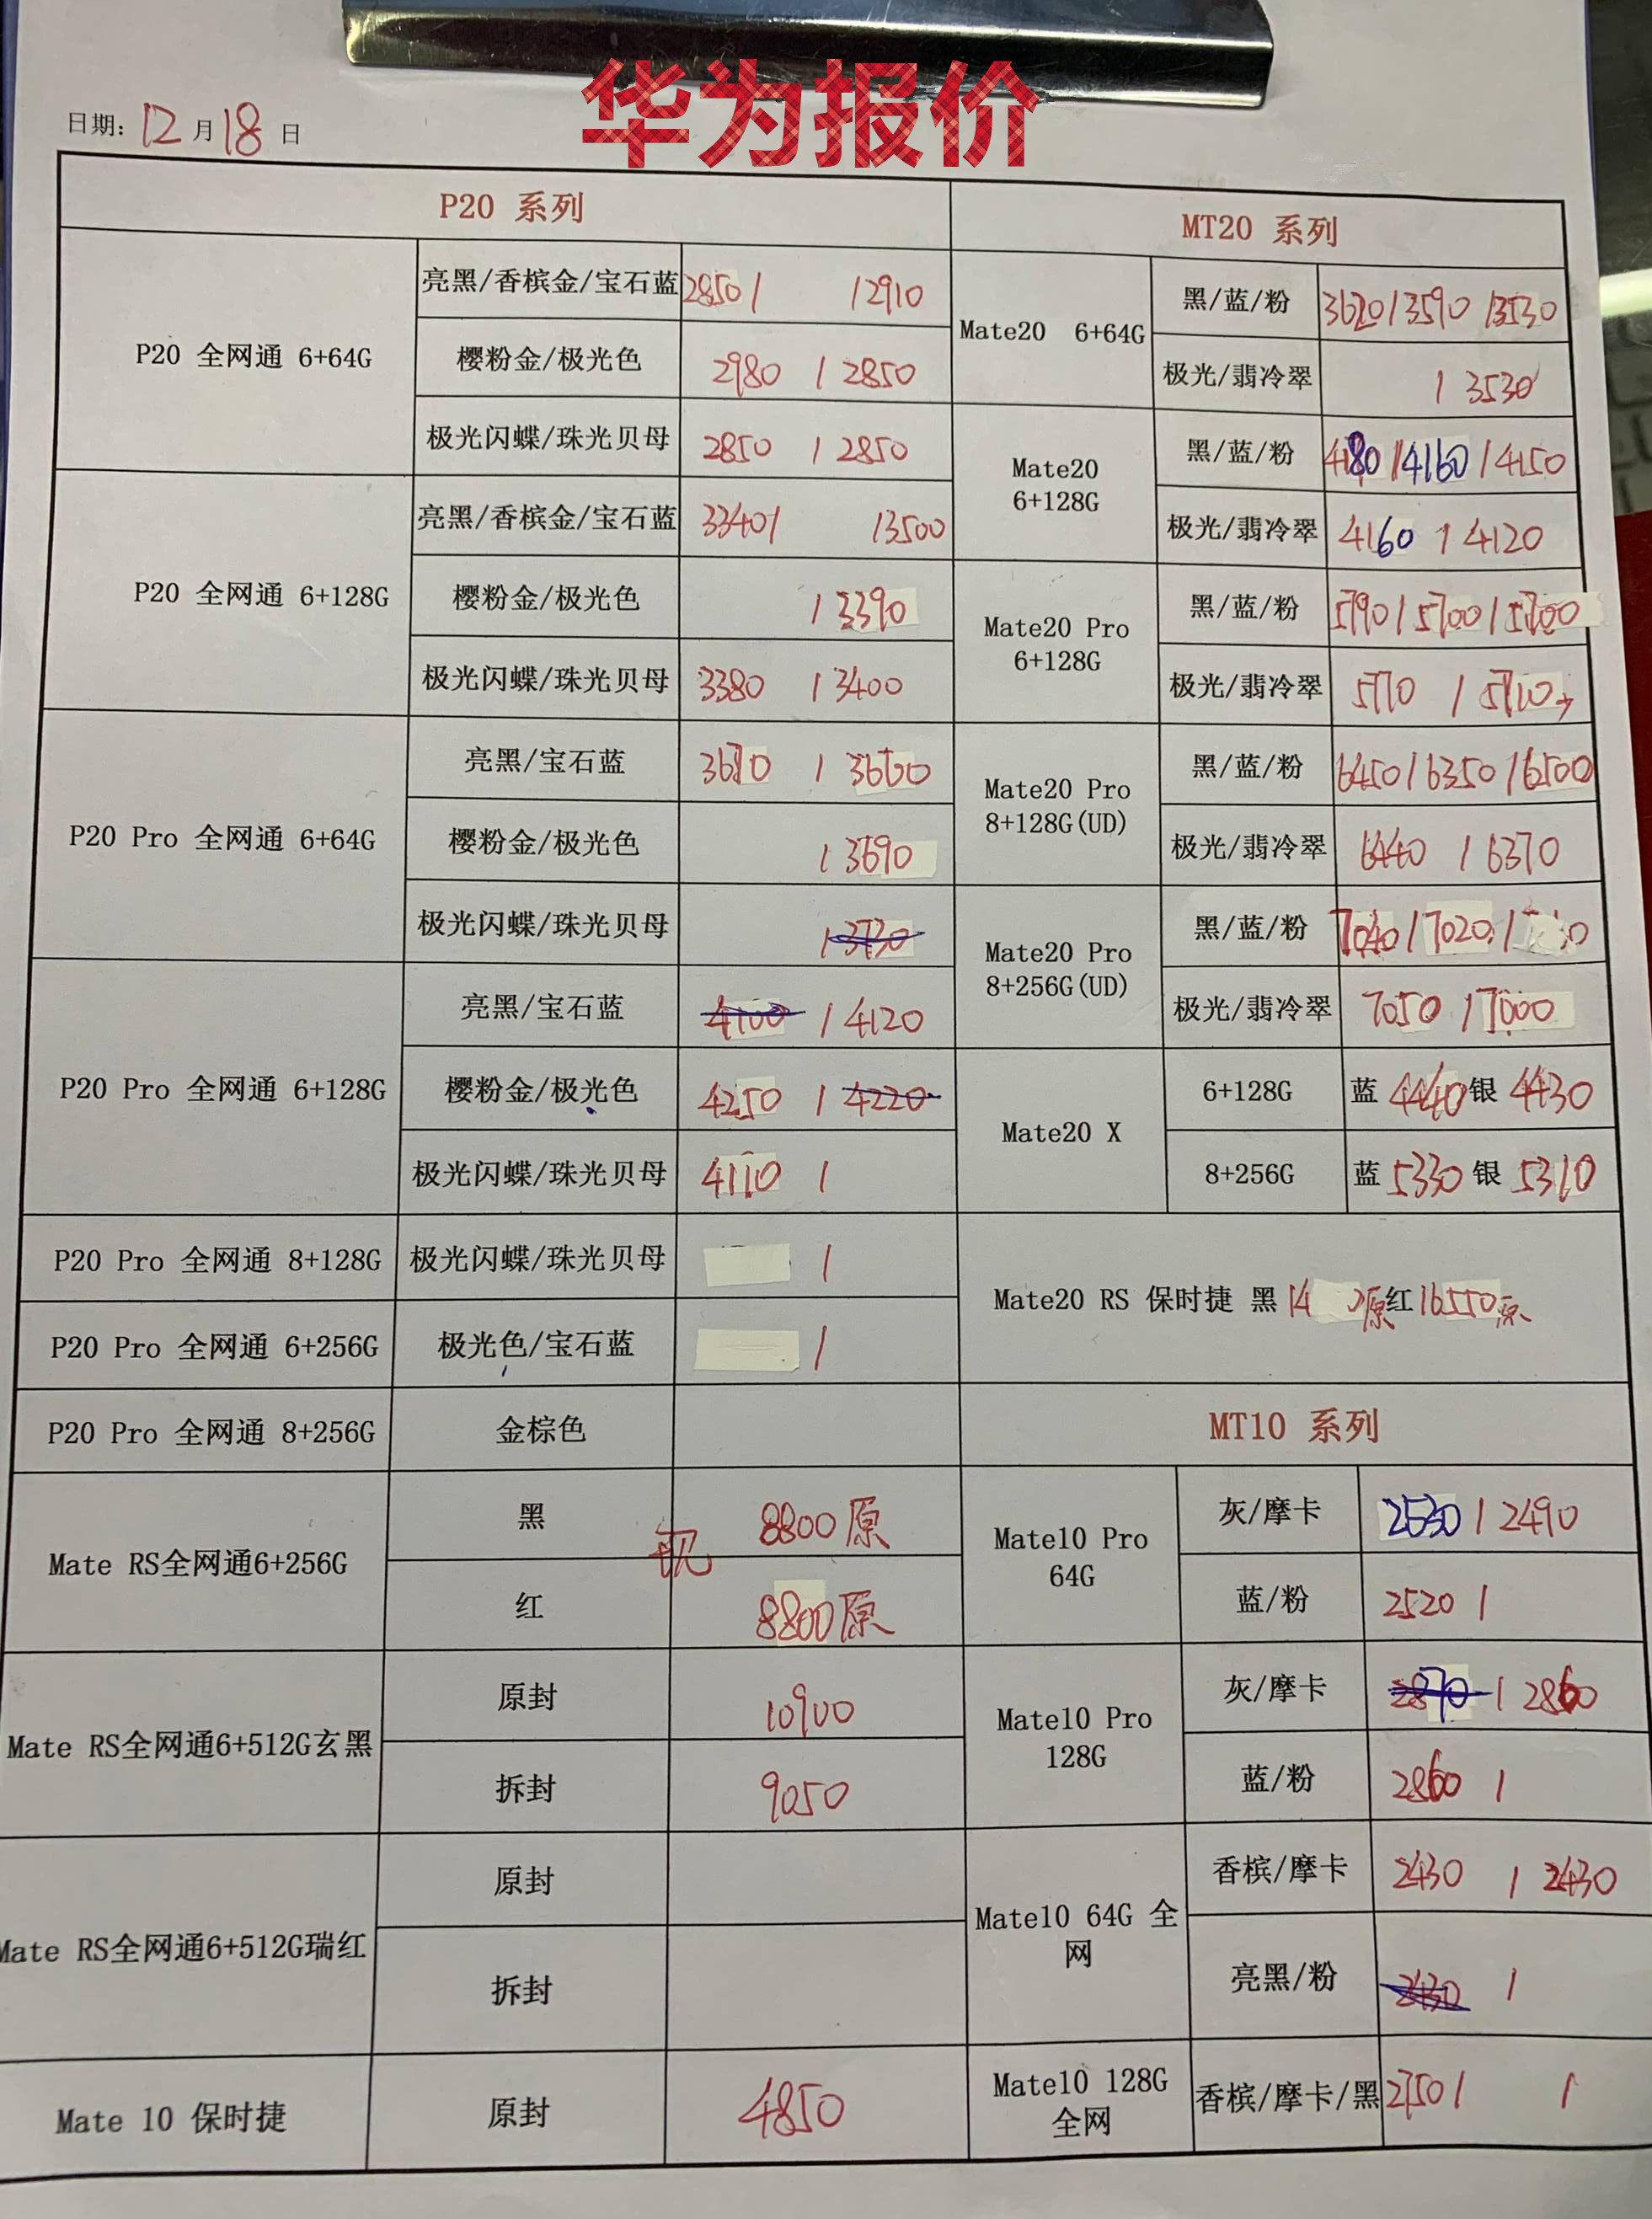 华为报价
日期: 12 月 18 日
P20 系列
P20 全网通 6+64G
亮黑/香槟金/宝石蓝 2850/ /2910
樱粉金/极光色 2980 / 2850
极光闪蝶/珠光贝母 2850 / 2850
P20 全网通 6+128G
亮黑/香槟金/宝石蓝 3340/ /3500
樱粉金/极光色 / 3390
极光闪蝶/珠光贝母 3380 / 3400
P20 Pro 全网通 6+64G
亮黑/宝石蓝 / 3660
樱粉金/极光色 / 3690
极光闪蝶/珠光贝母 / 3730
P20 Pro 全网通 6+128G
亮黑/宝石蓝 4100 / 4120
樱粉金/极光色 4250 / 4220
极光闪蝶/珠光贝母 4110 /
P20 Pro 全网通 8+128G 极光闪蝶/珠光贝母 /
P20 Pro 全网通 6+256G 极光色/宝石蓝 /
P20 Pro 全网通 8+256G 金棕色
Mate RS全网通6+256G
黑 8800原
现
红 8800原
Mate RS全网通6+512G玄黑
原封 10900
拆封 9050
Mate RS全网通6+512G瑞红
原封
拆封
Mate 10 保时捷 原封 4850
MT20 系列
Mate20 6+64G
黑/蓝/粉 3620/3590/3530
极光/翡冷翠 / 3530
Mate20
6+128G
黑/蓝/粉 4180/4160/4150
极光/翡冷翠 4160 / 4120
Mate20 Pro
6+128G
黑/蓝/粉 5790/5700/5700
极光/翡冷翠 5710 / 5710
Mate20 Pro
8+128G(UD)
黑/蓝/粉 6450/6350/6500
极光/翡冷翠 6440 / 6370
Mate20 Pro
8+256G(UD)
黑/蓝/粉 7040/7020/
极光/翡冷翠 7050 / 7000
Mate20 X
6+128G 蓝 4440 银 4430
8+256G 蓝 5330 银 5310
Mate20 RS 保时捷 黑 14 0原 红 16550原
MT10 系列
Mate10 Pro
64G
灰/摩卡 2530 / 2490
蓝/粉 2520 /
Mate10 Pro
128G
灰/摩卡 2870 / 2860
蓝/粉 2860 /
Mate10 64G 全
网
香槟/摩卡 2430 / 2430
亮黑/粉 2430 /
Mate10 128G
全网
香槟/摩卡/黑 2750/ /